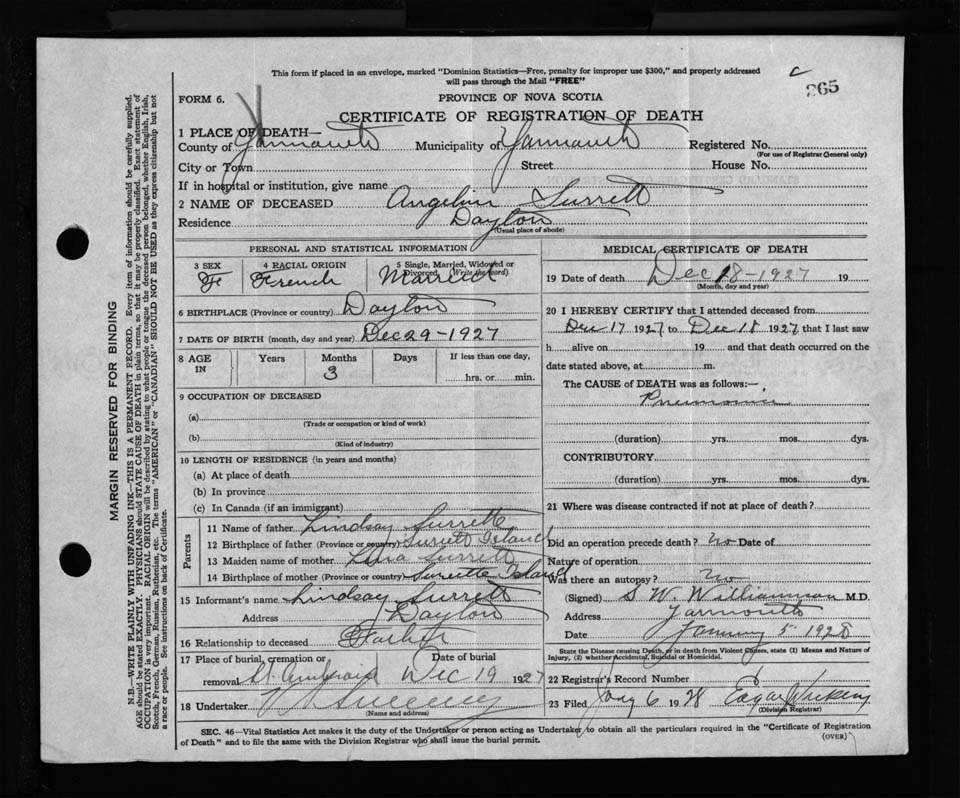 This form if placed in an envelope, marked "Dominion Statistics—Free, penalty for improper use $300," and properly addressed
will pass through the Mail "FREE"
c
265
FORM 6.
PROVINCE OF NOVA SCOTIA
CERTIFICATE OF REGISTRATION OF DEATH
1 PLACE OF DEATH—
County of Yarmouth Municipality of Yarmouth Registered No.
(For use of Registrar General only)
City or Town Street House No.
If in hospital or institution, give name
2 NAME OF DECEASED Angelin Surrett
Residence Dayton
(Usual place of abode)
PERSONAL AND STATISTICAL INFORMATION
3 SEX
Fe
4 RACIAL ORIGIN
French
5 Single, Married, Widowed or
Divorced (Write the word)
Married
6 BIRTHPLACE (Province or country) Dayton
7 DATE OF BIRTH (month, day and year) Dec 29-1927
8 AGE IN
Years
Months
3
Days
If less than one day,
hrs. or min.
9 OCCUPATION OF DECEASED
(a)
(Trade or occupation or kind of work)
(b)
(Kind of industry)
10 LENGTH OF RESIDENCE (in years and months)
(a) At place of death
(b) In province
(c) In Canada (if an immigrant)
Parents
11 Name of father Lindsay Surrette
12 Birthplace of father (Province or country) Surrett Island
13 Maiden name of mother Surrett
14 Birthplace of mother (Province or country) Surette Island
15 Informant's name Lindsay Surrett
Address Dayton
16 Relationship to deceased Father
17 Place of burial, cremation or
removal St. Date of burial
Dec 19 1927
18 Undertaker Sweeny
(Name and address)
MEDICAL CERTIFICATE OF DEATH
19 Date of death Dec 18-1927 19
(Month, day and year)
20 I HEREBY CERTIFY that I attended deceased from
Dec 17 1927 to Dec 18 1927 that I last saw
h alive on 19 and that death occurred on the
date stated above, at m.
The CAUSE of DEATH was as follows:—
Pneumonia
(duration) yrs. mos. dys.
CONTRIBUTORY
(duration) yrs. mos. dys.
21 Where was disease contracted if not at place of death?
Did an operation precede death? no Date of
Nature of operation
Was there an autopsy? no
(Signed) S W. Williamson M.D.
Address Yarmouth
Date January 5 1928
State the Disease causing Death, or in death from Violent Causes, state (1) Means and Nature of
Injury, (2) whether Accidental, Suicidal or Homicidal.
22 Registrar's Record Number
23 Filed Jany 6 1928 Edgar
(Division Registrar)
SEC. 46—Vital Statistics Act makes it the duty of the Undertaker or person acting as Undertaker to obtain all the particulars required in the "Certificate of Registration
of Death" and to file the same with the Division Registrar who shall issue the burial permit.
(OVER)
MARGIN RESERVED FOR BINDING
N.B.—WRITE PLAINLY WITH UNFADING INK—THIS IS A PERMANENT RECORD. Every item of information should be carefully supplied.
AGE should be stated EXACTLY. PHYSICIANS should STATE CAUSE OF DEATH in plain terms, so that it may be properly classified. Exact statement of
OCCUPATION is very important. RACIAL ORIGIN will be described by stating to what people or tongue the deceased person belonged, whether English, Irish,
Scotch, French, German, Russian, Ruthenian, etc. The terms "AMERICAN" or "CANADIAN" SHOULD NOT BE USED as they express citizenship but not
a race or people. See instructions on back of Certificate.